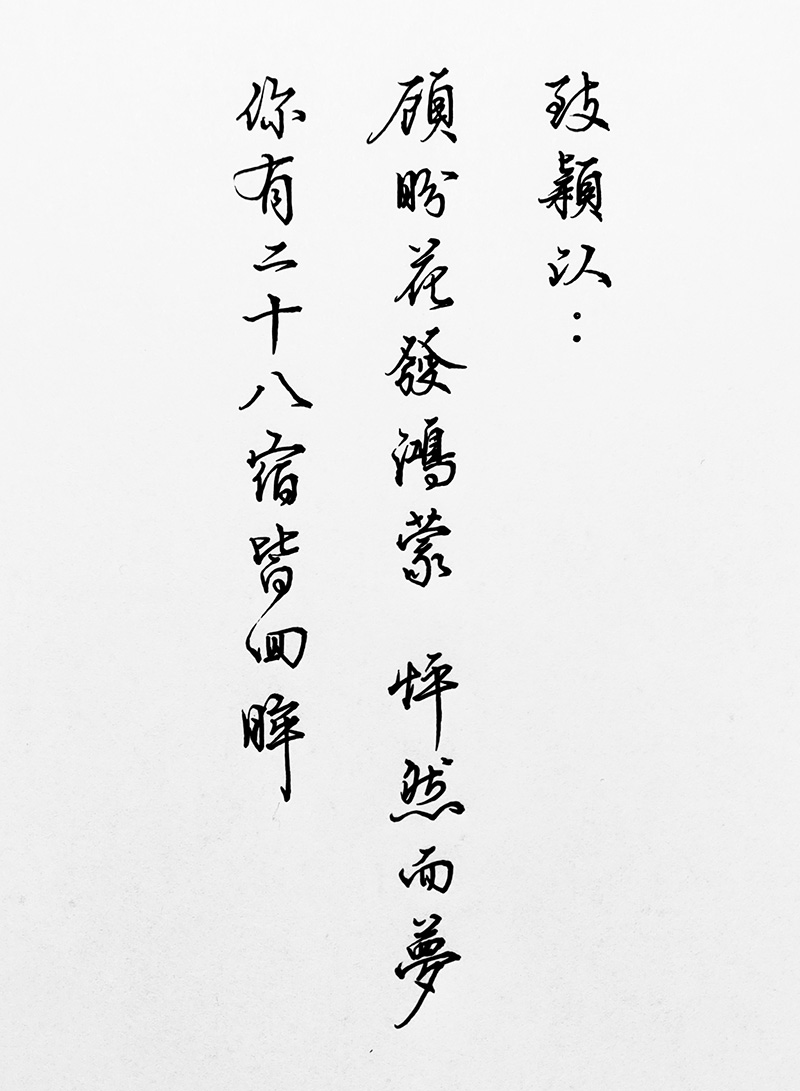 致穎以：
顧盼花發鴻蒙 怦然而夢
你有二十八宿皆回眸